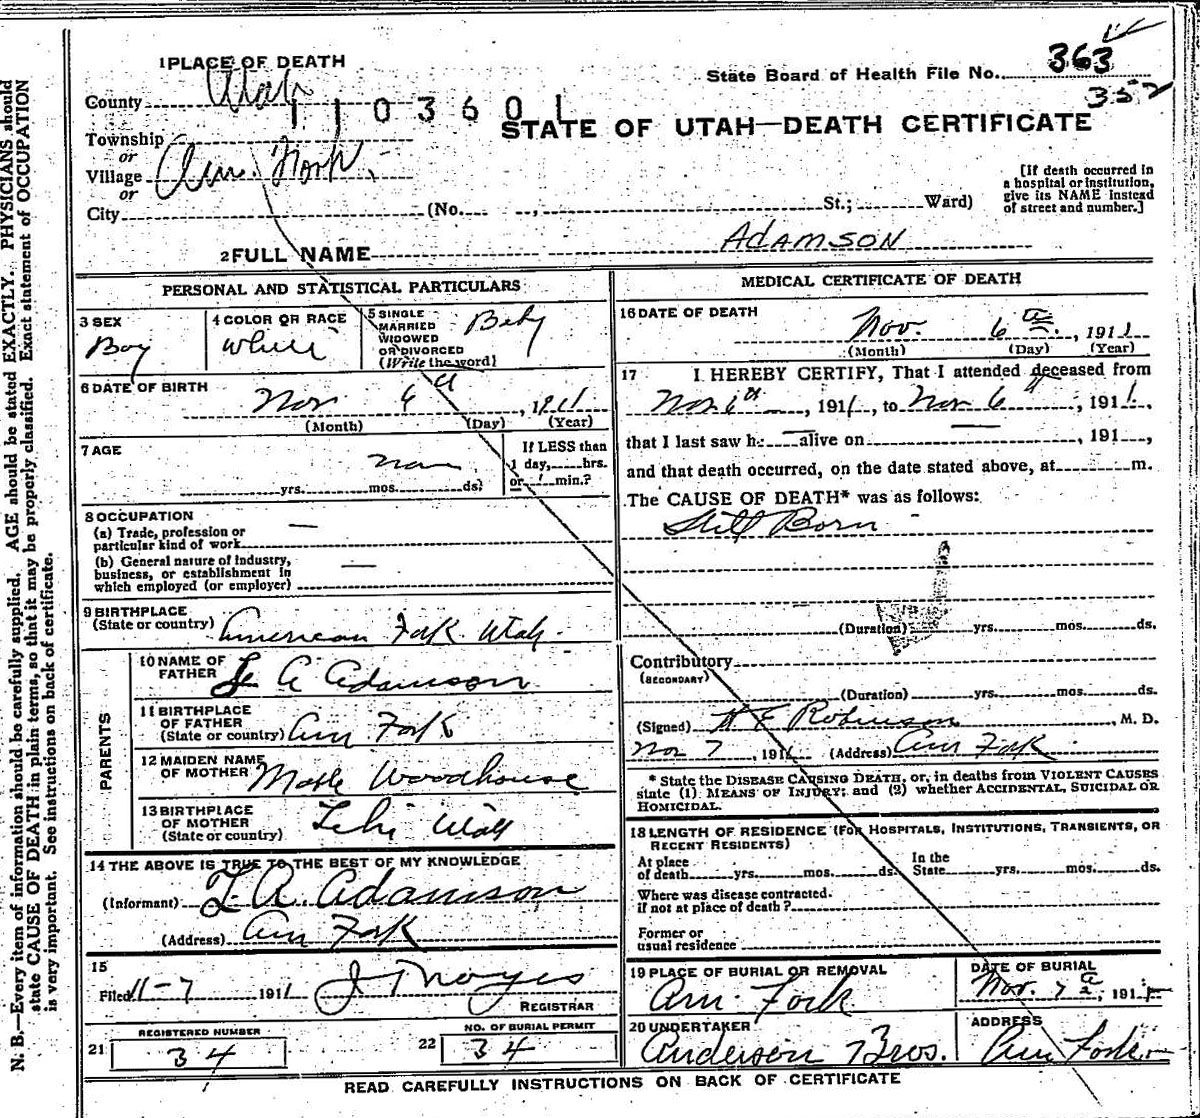 N. B.—Every item of information should be carefully supplied. AGE should be stated EXACTLY. PHYSICIANS should
state CAUSE OF DEATH in plain terms, so that it may be properly classified. Exact statement of OCCUPATION
is very important. See instructions on back of certificate.
1 PLACE OF DEATH
State Board of Health File No. 363
352
County Utah
1103601
STATE OF UTAH—DEATH CERTIFICATE
Township
or
Village Am. Fork
or
City (No. , St.; Ward)
[If death occurred in
a hospital or institution,
give its NAME instead
of street and number.]
2 FULL NAME ADAMSON
PERSONAL AND STATISTICAL PARTICULARS
3 SEX
Boy
4 COLOR OR RACE
White
5 SINGLE
MARRIED
WIDOWED
OR DIVORCED
(Write the word)
6 DATE OF BIRTH
Nov 6th, 1911
(Month) (Day) (Year)
7 AGE
yrs. mos. ds.
If LESS than
1 day, hrs.
or min.?
8 OCCUPATION
(a) Trade, profession or
particular kind of work —
(b) General nature of industry,
business, or establishment in
which employed (or employer) —
9 BIRTHPLACE
(State or country) American Fork Utah.
PARENTS
10 NAME OF
FATHER A Adamson
11 BIRTHPLACE
OF FATHER
(State or country) Am Fork
12 MAIDEN NAME
OF MOTHER Woodhouse
13 BIRTHPLACE
OF MOTHER
(State or country) Lehi Utah
14 THE ABOVE IS TRUE TO THE BEST OF MY KNOWLEDGE
(Informant) A. Adamson
(Address) Am Fork
15
Filed 11-7 1911 J Noyes
REGISTRAR
REGISTERED NUMBER
21 34
NO. OF BURIAL PERMIT
22 34
MEDICAL CERTIFICATE OF DEATH
16 DATE OF DEATH
Nov. 6th, 1911
(Month) (Day) (Year)
17 I HEREBY CERTIFY, That I attended deceased from
Nov 6th, 1911, to Nov 6th, 1911,
that I last saw h — alive on —, 191 ,
and that death occurred, on the date stated above, at m.
The CAUSE OF DEATH* was as follows:
Still Born
(Duration) yrs. mos. ds.
Contributory
(SECONDARY)
(Duration) yrs. mos. ds.
(Signed) Robinson, M. D.
Nov 7, 1911 (Address) Am Fork
* State the DISEASE CAUSING DEATH, or, in deaths from VIOLENT CAUSES
state (1) MEANS OF INJURY; and (2) whether ACCIDENTAL, SUICIDAL OR
HOMICIDAL.
18 LENGTH OF RESIDENCE (FOR HOSPITALS, INSTITUTIONS, TRANSIENTS, OR
RECENT RESIDENTS)
At place
of death yrs. mos. ds.
In the
State yrs. mos. ds.
Where was disease contracted.
if not at place of death?
Former or
usual residence
19 PLACE OF BURIAL OR REMOVAL
Am. Fork
DATE OF BURIAL
Nov. 7th, 191
20 UNDERTAKER
Anderson Bros.
ADDRESS
Am Fork
READ CAREFULLY INSTRUCTIONS ON BACK OF CERTIFICATE